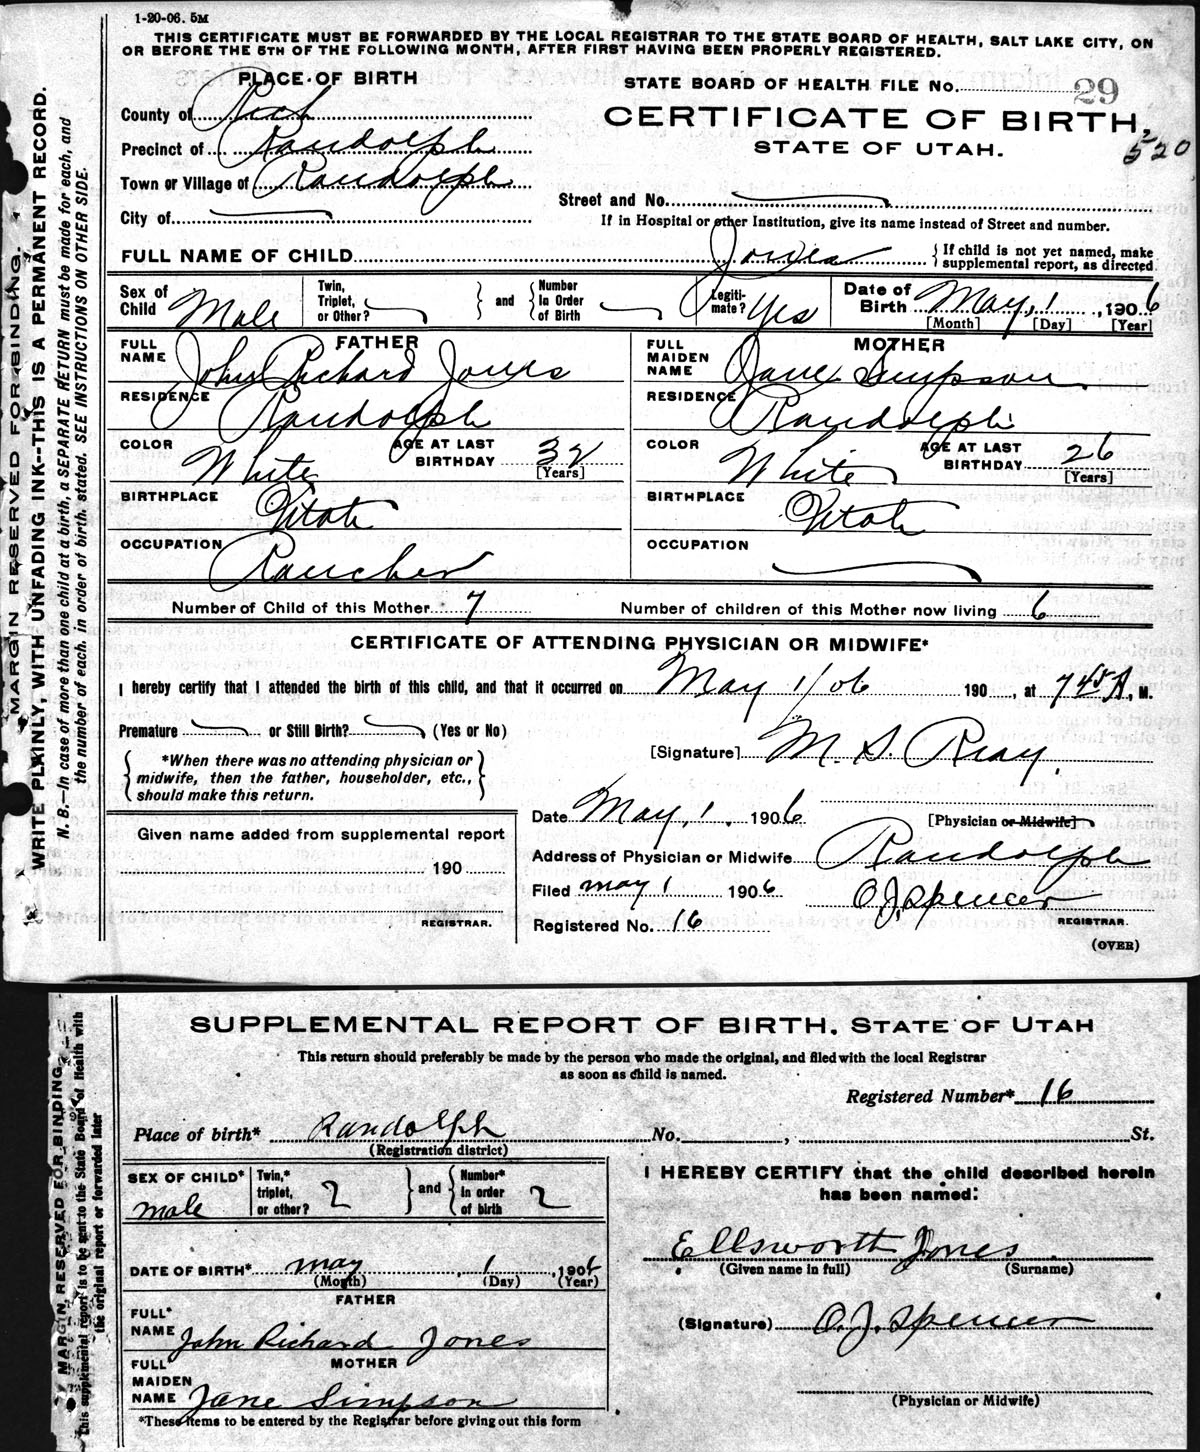 1-20-06. 5M
THIS CERTIFICATE MUST BE FORWARDED BY THE LOCAL REGISTRAR TO THE STATE BOARD OF HEALTH, SALT LAKE CITY, ON
OR BEFORE THE 5TH OF THE FOLLOWING MONTH, AFTER FIRST HAVING BEEN PROPERLY REGISTERED.
MARGIN RESERVED FOR BINDING.
WRITE PLAINLY, WITH UNFADING INK--THIS IS A PERMANENT RECORD.
N. B.—In case of more than one child at a birth, a SEPARATE RETURN must be made for each, and
the number of each. in order of birth. stated. SEE INSTRUCTIONS ON OTHER SIDE.
PLACE OF BIRTH
County of Rich
Precinct of Randolph
Town or Village of Randolph
City of
STATE BOARD OF HEALTH FILE No. 29
CERTIFICATE OF BIRTH,
520
STATE OF UTAH.
Street and No.
If in Hospital or other Institution, give its name instead of Street and number.
FULL NAME OF CHILD Jones { If child is not yet named, make
supplemental report, as directed
Sex of Child Male
Twin, Triplet, or Other? } and { Number In Order of Birth
Legiti- mate? Yes
Date of Birth May, 1, 1906
[Month] [Day] [Year]
FATHER
FULL NAME John Richard Jones
RESIDENCE Randolph
COLOR White AGE AT LAST BIRTHDAY 32 [Years]
BIRTHPLACE Utah
OCCUPATION Rancher
MOTHER
FULL MAIDEN NAME Jane Simpson
RESIDENCE Randolph
COLOR White AGE AT LAST BIRTHDAY 26 [Years]
BIRTHPLACE Utah
OCCUPATION
Number of Child of this Mother 7 Number of children of this Mother now living 6
CERTIFICATE OF ATTENDING PHYSICIAN OR MIDWIFE*
I hereby certify that I attended the birth of this child, and that it occurred on May 1/06 190 , at 7 45 A, M.
Premature or Still Birth? (Yes or No)
[Signature] M. S. Reay.
{ *When there was no attending physician or
midwife, then the father, householder, etc.,
should make this return. }
Date May, 1. 1906
[Physician or Midwife]
Given name added from supplemental report
190
REGISTRAR.
Address of Physician or Midwife Randolph
Filed May 1 1906 O.J. Spencer
REGISTRAR.
Registered No. 16
(OVER)
MARGIN RESERVED FOR BINDING
This supplemental report is to be sent to the State Board of Health with
the original report or forwarded later
SUPPLEMENTAL REPORT OF BIRTH, STATE OF UTAH
This return should preferably be made by the person who made the original, and filed with the local Registrar
as soon as child is named.
Registered Number* 16
Place of birth* Randolph No. , St.
(Registration district)
SEX OF CHILD* male
Twin,* triplet, or other? 2 } and { Number* in order of birth 2
DATE OF BIRTH* may , 1 , 1906
(Month) (Day) (Year)
FATHER
FULL* NAME John Richard Jones
MOTHER
FULL MAIDEN NAME Jane Simpson
*These items to be entered by the Registrar before giving out this form
I HEREBY CERTIFY that the child described herein
has been named:
Ellsworth Jones
(Given name in full) (Surname)
(Signature) O.J. Spencer
(Physician or Midwife)